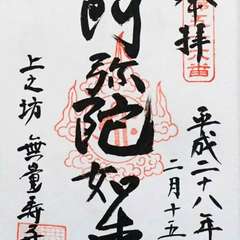 奉拝
平成二十八年
二月十五
阿弥陀如来
上之坊 無量寿寺